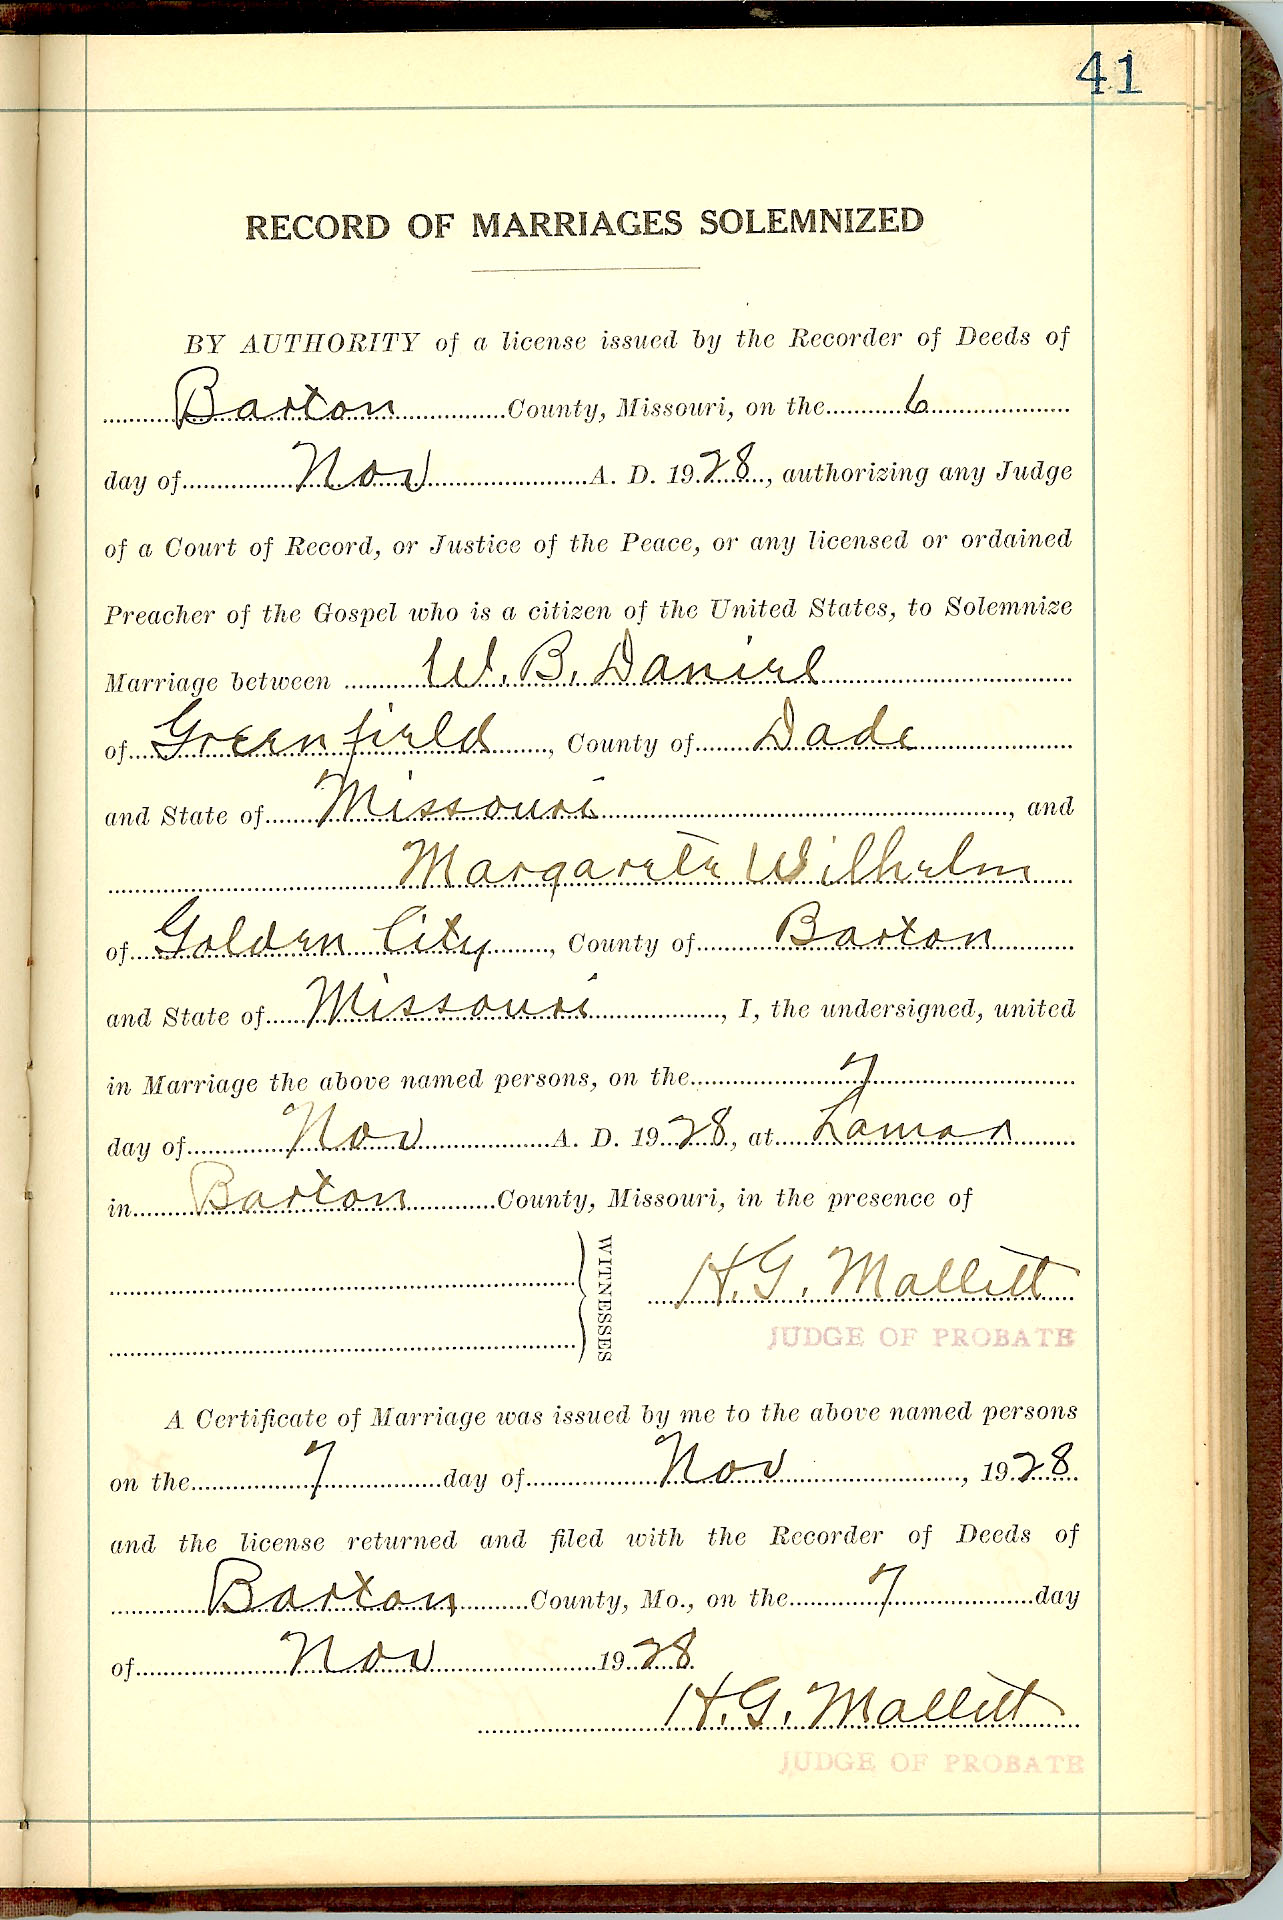 41
RECORD OF MARRIAGES SOLEMNIZED
BY AUTHORITY of a license issued by the Recorder of Deeds of
Barton County, Missouri, on the 6
day of Nov A. D. 1928, authorizing any Judge
of a Court of Record, or Justice of the Peace, or any licensed or ordained
Preacher of the Gospel who is a citizen of the United States, to Solemnize
Marriage between W. B. Daniel
of Greenfield, County of Dade
and State of Missouri, and
Margarete Wilhelm
of Golden City, County of Barton
and State of Missouri, I, the undersigned, united
in Marriage the above named persons, on the 7
day of Nov A. D. 1928, at Lamar
in Barton County, Missouri, in the presence of
WITNESSES
H. G. Mallett
JUDGE OF PROBATE
A Certificate of Marriage was issued by me to the above named persons
on the 7 day of Nov, 1928
and the license returned and filed with the Recorder of Deeds of
Barton County, Mo., on the 7 day
of Nov 1928
H. G. Mallett
JUDGE OF PROBATE